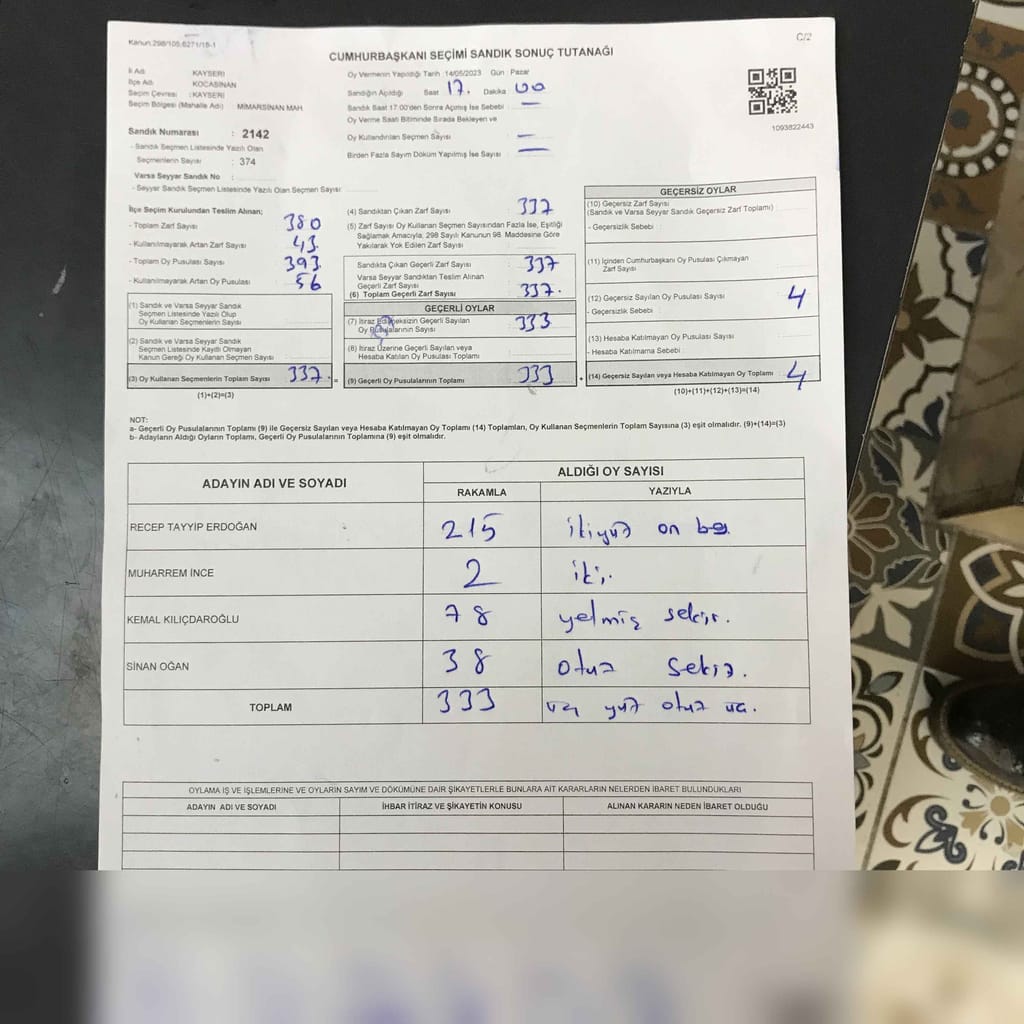 Kanun:298/105,6271/15-1
C/2
CUMHURBAŞKANI SEÇİMİ SANDIK SONUÇ TUTANAĞI
İl Adı : KAYSERİ
İlçe Adı : KOCASİNAN
Seçim Çevresi : KAYSERİ
Seçim Bölgesi (Mahalle Adı) : MİMARSİNAN MAH.
Sandık Numarası : 2142
- Sandık Seçmen Listesinde Yazılı Olan
Seçmenlerin Sayısı : 374
Varsa Seyyar Sandık No :
- Seyyar Sandık Seçmen Listesinde Yazılı Olan Seçmen Sayısı
Oy Vermenin Yapıldığı Tarih 14/05/2023 Gün : Pazar
Sandığın Açıldığı Saat 17. Dakika 00
Sandık Saat 17.00'den Sonra Açımış İse Sebebi : —
Oy Verme Saati Bitiminde Sırada Bekleyen ve
Oy Kullandırılan Seçmen Sayısı : —
Birden Fazla Sayım Döküm Yapılmış İse Sayısı : —
1093822443
İlçe Seçim Kurulundan Teslim Alınan;
- Toplam Zarf Sayısı 380
- Kullanılmayarak Artan Zarf Sayısı 43
- Toplam Oy Pusulası Sayısı 393
- Kullanılmayarak Artan Oy Pusulası 56
(1) Sandık ve Varsa Seyyar Sandık
Seçmen Listesinde Yazılı Olup
Oy Kullanan Seçmenlerin Sayısı
(2) Sandık ve Varsa Seyyar Sandık
Seçmen Listesinde Kayıtlı Olmayan
Kanun Gereği Oy Kullanan Seçmen Sayısı
(3) Oy Kullanan Seçmenlerin Toplam Sayısı 337 =
(1)+(2)=(3)
(4) Sandıktan Çıkan Zarf Sayısı 337
(5) Zarf Sayısı Oy Kullanan Seçmen Sayısından Fazla İse, Eşitliği
Sağlamak Amacıyla, 298 Sayılı Kanunun 98. Maddesine Göre
Yakılarak Yok Edilen Zarf Sayısı
Sandıkta Çıkan Geçerli Zarf Sayısı 337
Varsa Seyyar Sandıktan Teslim Alınan
Geçerli Zarf Sayısı
(6) Toplam Geçerli Zarf Sayısı 337.
GEÇERLİ OYLAR
(7) İtiraz Edilmeksizin Geçerli Sayılan
Oy Pusulalarının Sayısı 333
(8) İtiraz Üzerine Geçerli Sayılan veya
Hesaba Katılan Oy Pusulası Toplamı
(9) Geçerli Oy Pusulalarının Toplamı 333 +
GEÇERSİZ OYLAR
(10) Geçersiz Zarf Sayısı
(Sandık ve Varsa Seyyar Sandık Geçersiz Zarf Toplamı)
- Geçersizlik Sebebi
(11) İçinden Cumhurbaşkanı Oy Pusulası Çıkmayan
Zarf Sayısı
(12) Geçersiz Sayılan Oy Pusulası Sayısı 4
- Geçersizlik Sebebi :
(13) Hesaba Katılmayan Oy Pusulası Sayısı
- Hesaba Katılmama Sebebi
(14) Geçersiz Sayılan veya Hesaba Katılmayan Oy Toplamı 4
(10)+(11)+(12)+(13)=(14)
NOT:
a- Geçerli Oy Pusulalarının Toplamı (9) ile Geçersiz Sayılan veya Hesaba Katılmayan Oy Toplamı (14) Toplamları, Oy Kullanan Seçmenlerin Toplam Sayısına (3) eşit olmalıdır. (9)+(14)=(3)
b- Adayların Aldığı Oyların Toplamı, Geçerli Oy Pusulalarının Toplamına (9) eşit olmalıdır.
ADAYIN ADI VE SOYADI
ALDIĞI OY SAYISI
RAKAMLA YAZIYLA
RECEP TAYYİP ERDOĞAN 215 ikiyüz on beş
MUHARREM İNCE 2 iki.
KEMAL KILIÇDAROĞLU 78 yetmiş sekiz.
SİNAN OĞAN 38 otuz sekiz.
TOPLAM 333 üç yüz otuz üç.
OYLAMA İŞ VE İŞLEMLERİNE VE OYLARIN SAYIM VE DÖKÜMÜNE DAİR ŞİKAYETLERLE BUNLARA AİT KARARLARIN NELERDEN İBARET BULUNDUKLARI
ADAYIN ADI VE SOYADI İHBAR İTİRAZ VE ŞİKAYETİN KONUSU ALINAN KARARIN NEDEN İBARET OLDUĞU